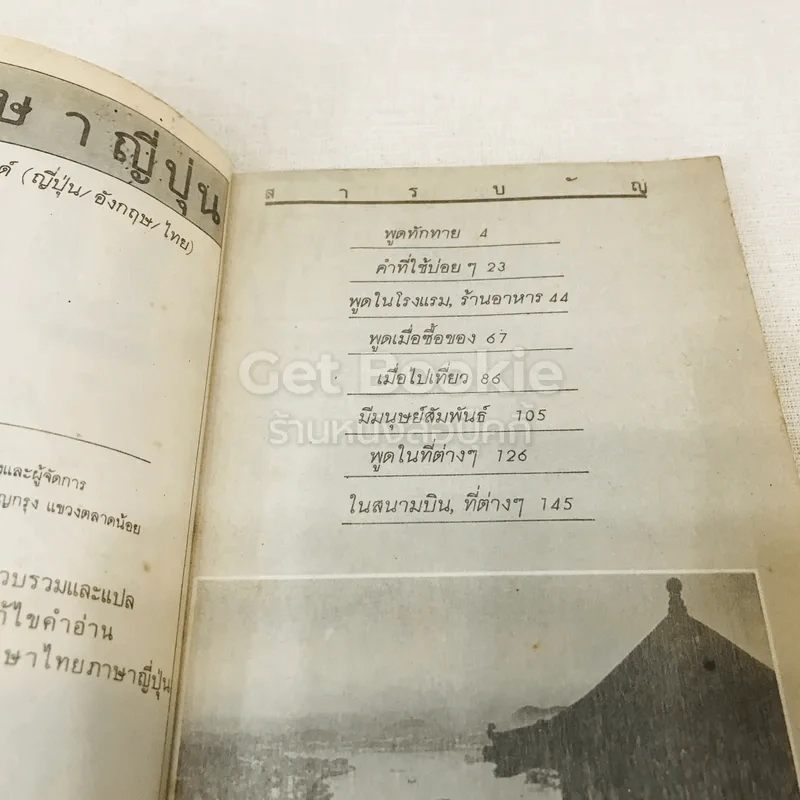 ษ า ญี่ปุ่น
ด์ (ญี่ปุ่น/อังกฤษ/ไทย)
และผู้จัดการ
ญกรุง แขวงตลาดน้อย
วบรวมและแปล
ก้ไขคำอ่าน
ษาไทยภาษาญี่ปุ่น
ส า ร บ ั ญ
พูดทักทาย 4
คำที่ใช้บ่อย ๆ 23
พูดในโรงแรม, ร้านอาหาร 44
พูดเมื่อซื้อของ 67
เมื่อไปเที่ยว 86
มีมนุษย์สัมพันธ์ 105
พูดในที่ต่างๆ 126
ในสนามบิน, ที่ต่างๆ 145
Get Bookie
ร้านหนังสือบุคกี้